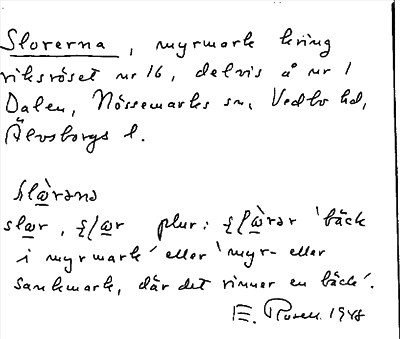 Slorerna, myrmark kring
riksröset nr 16, delvis å nr 1
Dalen, Nössemarks sn, Vedbo hd,
Älvsborgs l.
slæ̀rənɑ
slær, ʂlær plur: ʂlæ̀rər 'bäck
i myrmark' eller 'myr- eller
sankmark, där det rinner en bäck'.
E. Rosell 1948